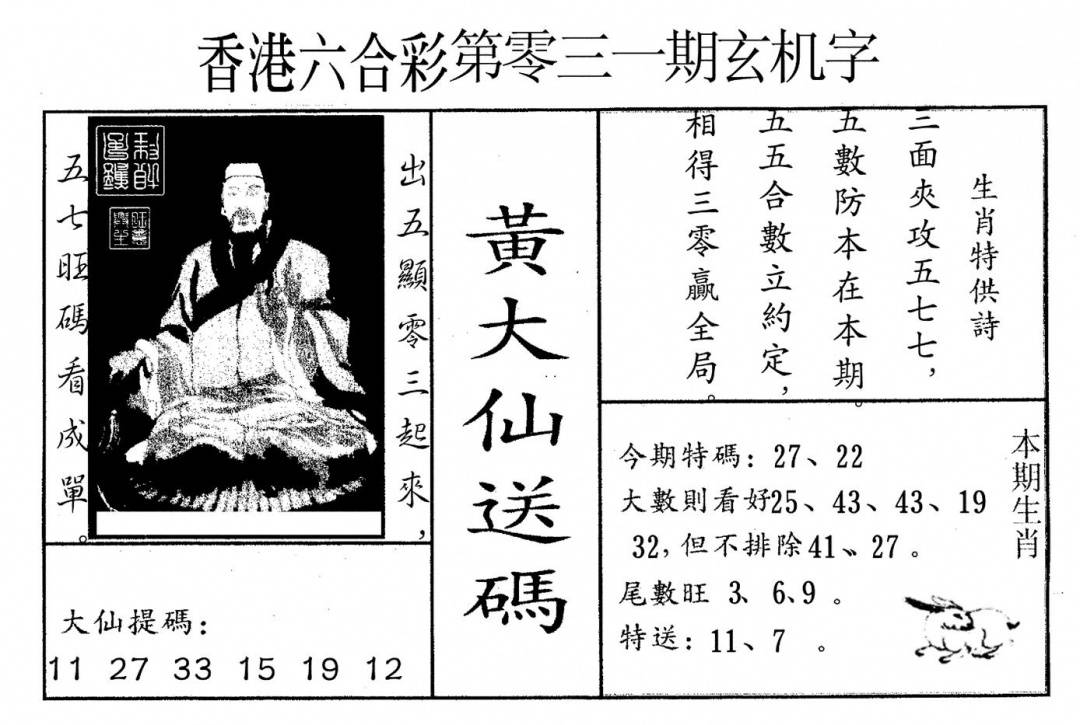 香港六合彩第零三一期玄机字
出五顯零三起來，
五七旺碼看成單。
大仙提碼：
11 27 33 15 19 12
黃大仙送碼
生肖特供詩
三面夾攻五七七，
五數防本在本期。
五五合數立約定，
相得三零贏全局。
本期生肖
今期特碼：27、22
大數則看好25、43、43、19
32，但不排除41、27。
尾數旺 3、6、9 。
特送：11、7 。